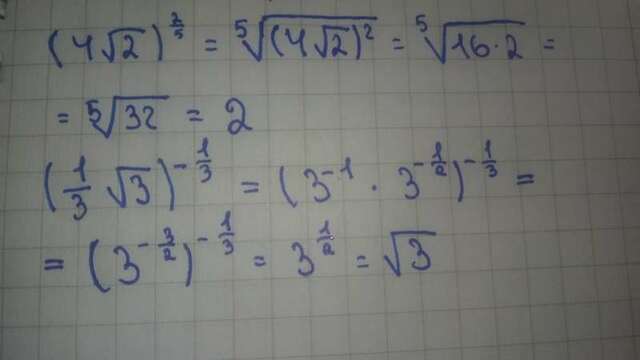 (4√2)^(2/5) = ⁵√((4√2)²) = ⁵√(16·2) =
= ⁵√32 = 2
(1/3 √3)^(-1/3) = (3^(-1) · 3^(-1/2))^(-1/3) =
= (3^(-3/2))^(-1/3) = 3^(1/2) = √3